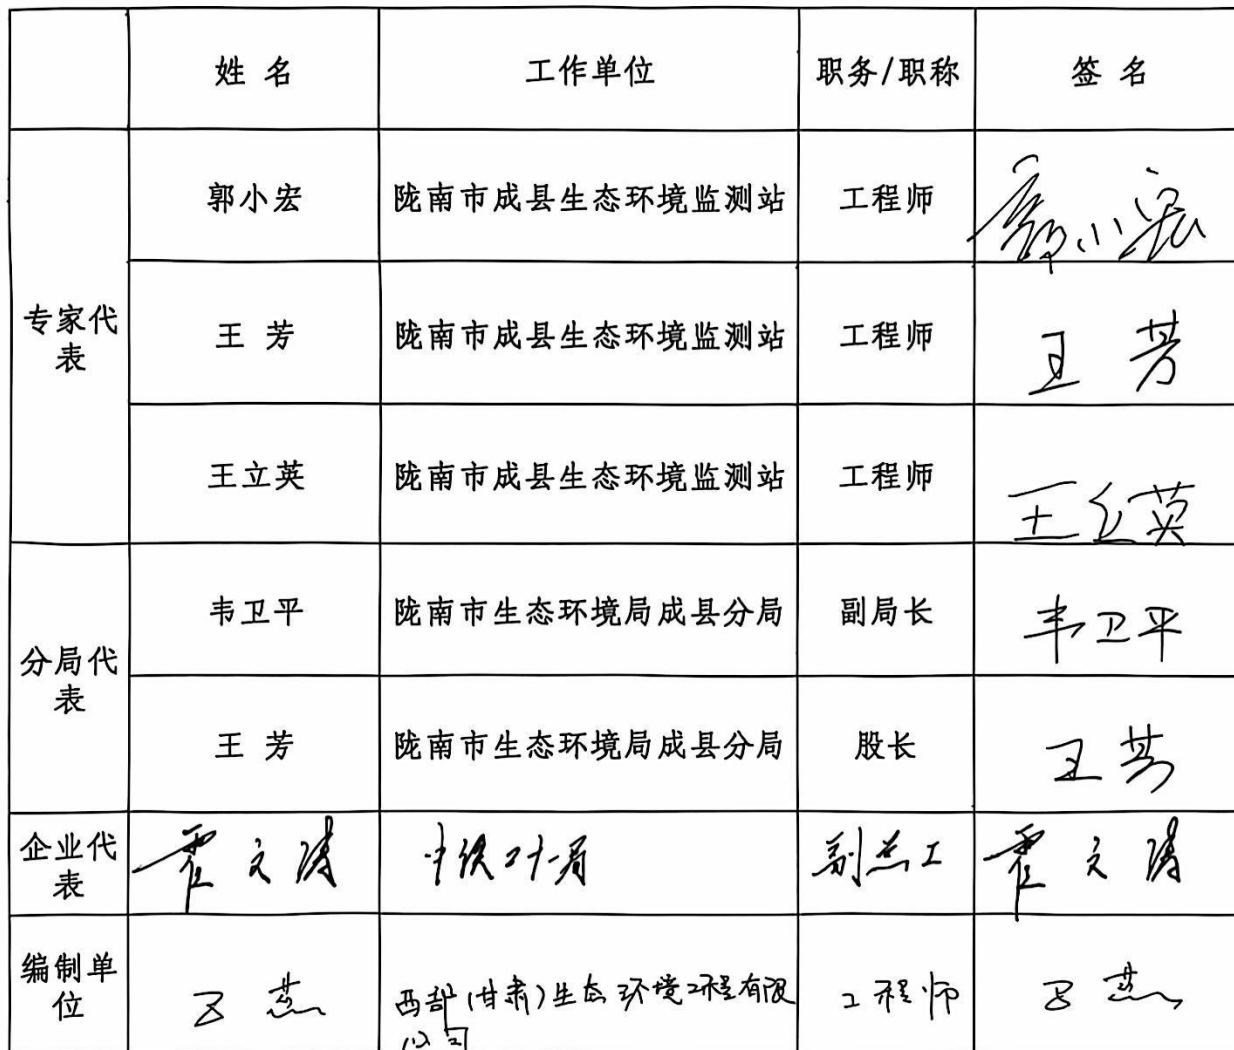 姓 名 工作单位 职务/职称 签 名
专家代表
郭小宏 陇南市成县生态环境监测站 工程师 郭小宏
王 芳 陇南市成县生态环境监测站 工程师 王 芳
王立英 陇南市成县生态环境监测站 工程师 王立英
分局代表
韦卫平 陇南市生态环境局成县分局 副局长 韦卫平
王 芳 陇南市生态环境局成县分局 股长 王芳
企业代表
霍文涛 中铁二十一局 副总工 霍文涛
编制单位
燕 西部(甘肃)生态环境工程有限公司 工程师 燕